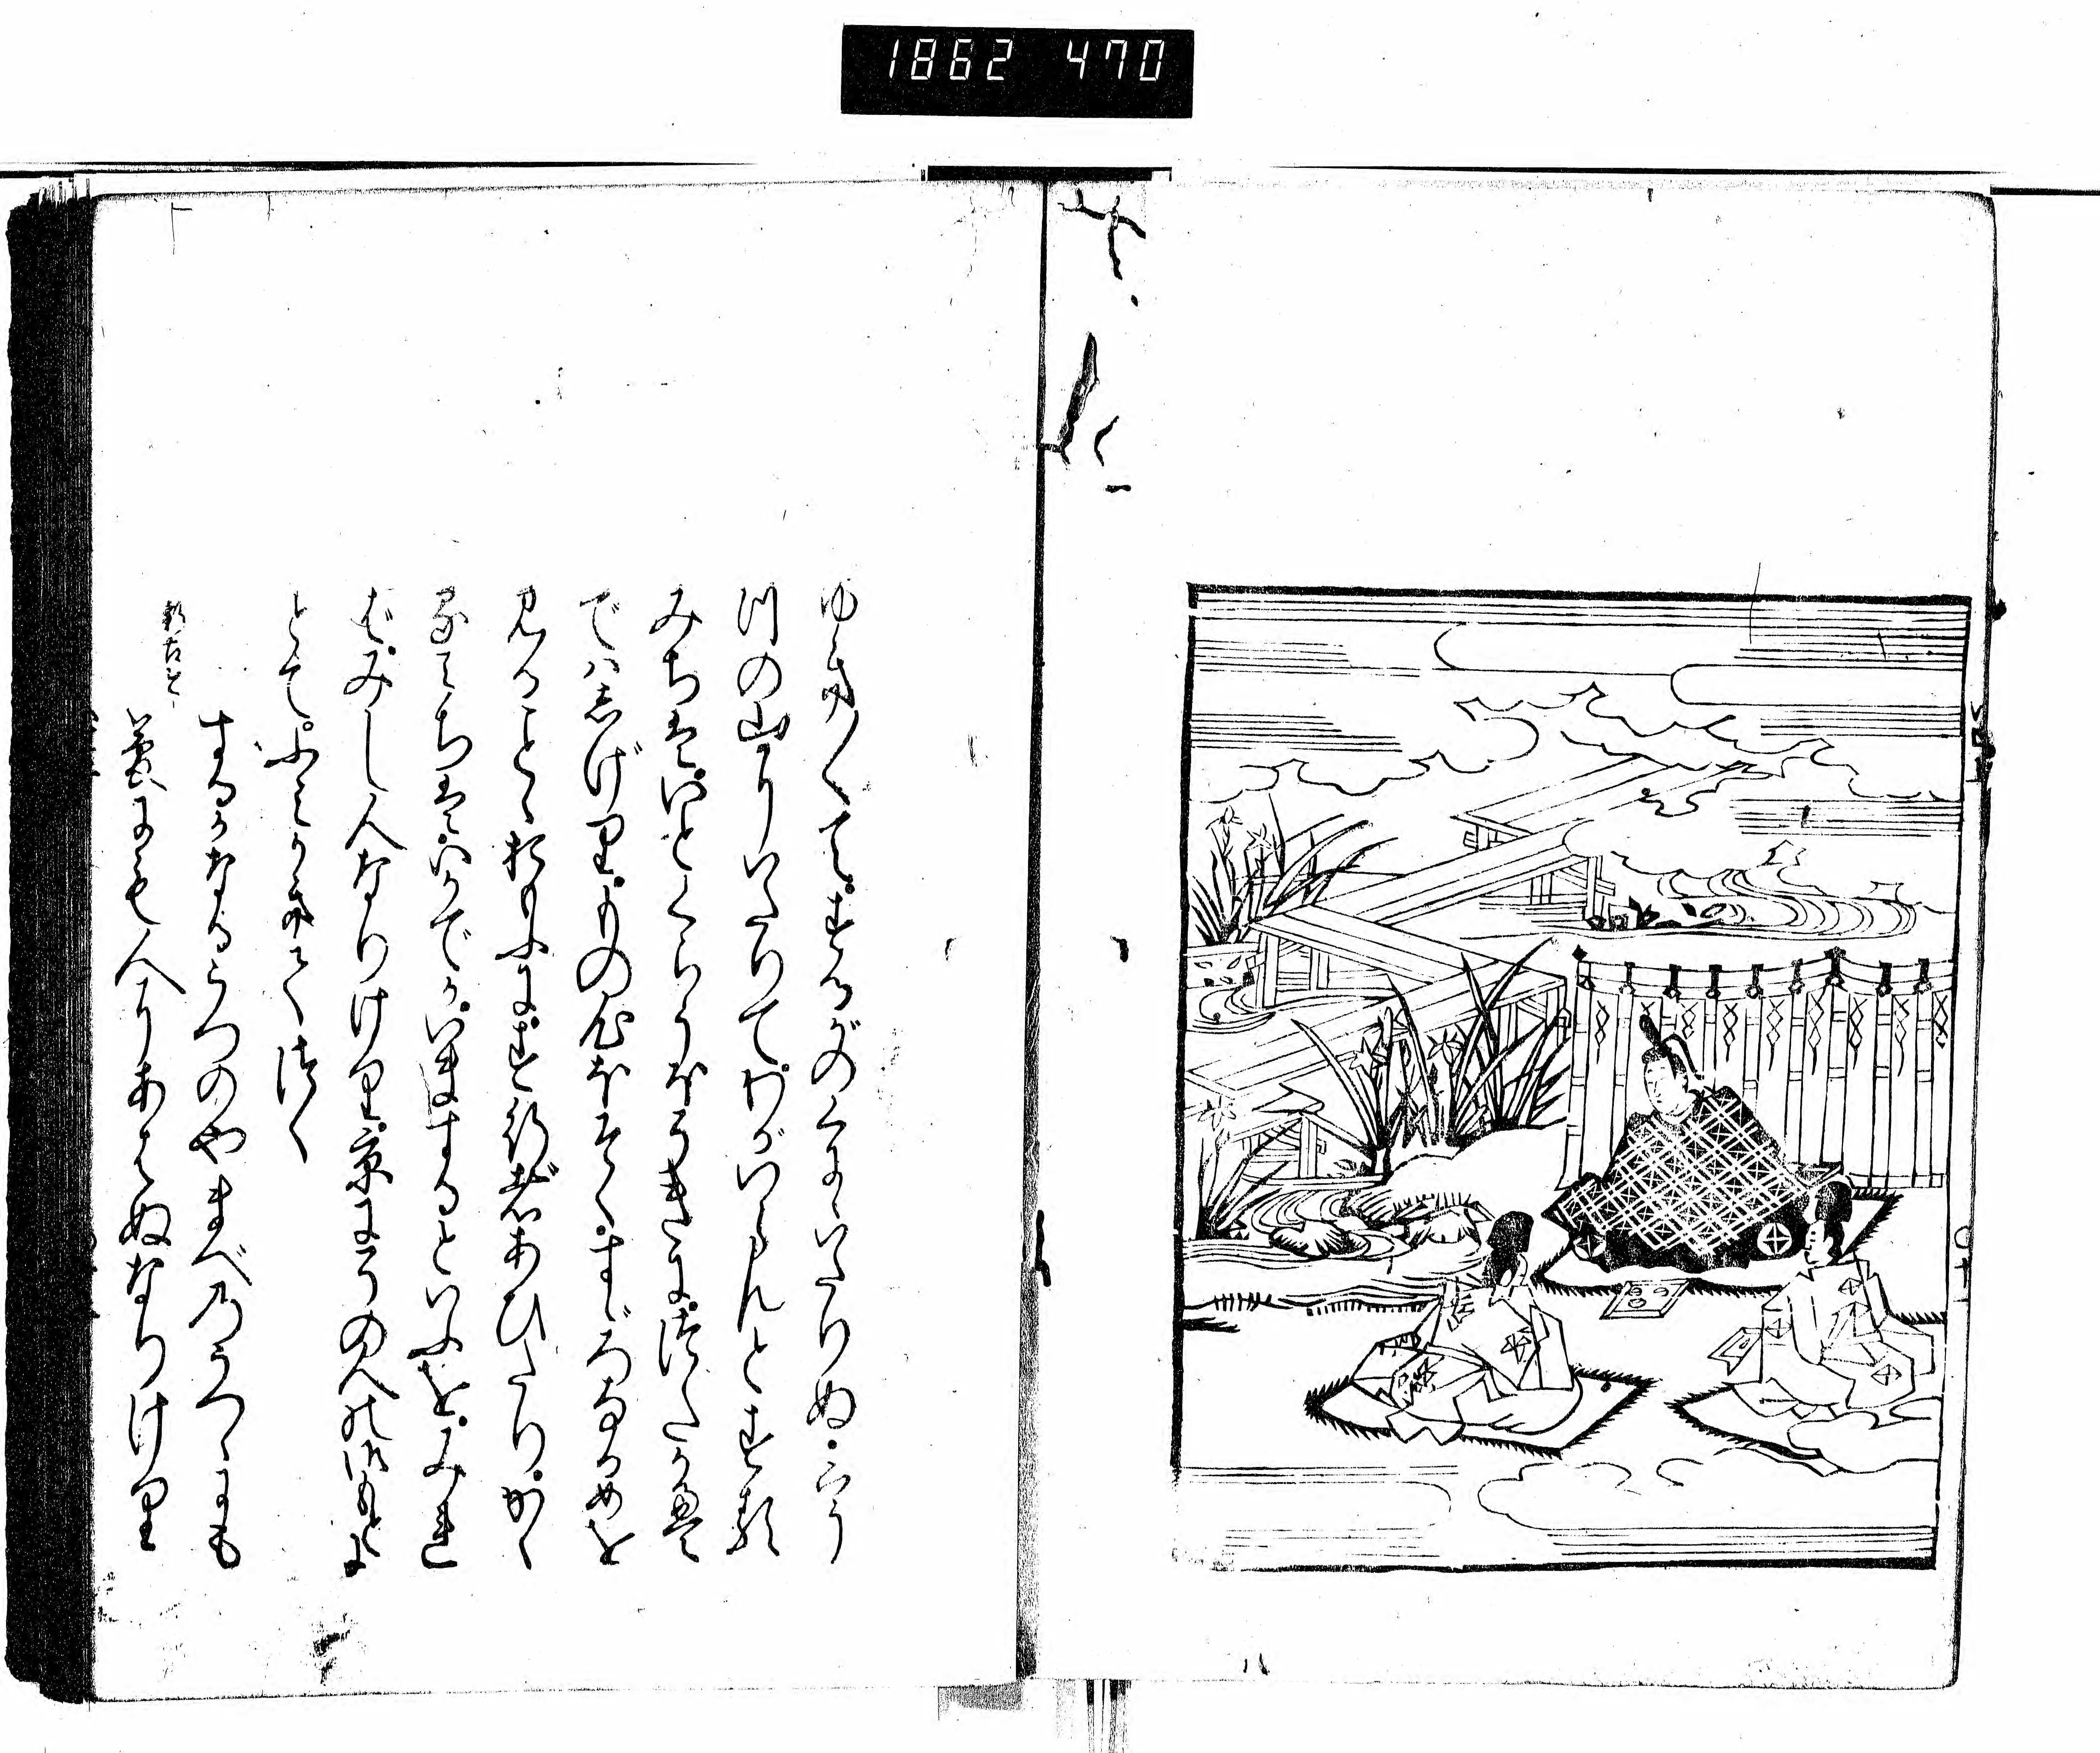 1862 470
ゆき〳〵て。するがのくにゝいたりぬ。うつ
の山にいたりて。わがいらんとする
みちは。いとくらうほそきに。つたかえ
では志げり。もの心ぼそく。すゞろなるめを
見ることゝおもふに。す行者あひたり。かゝ
るみちは。いかでか。いまするといふを。みれ
ば。みし人なりけり。京にその人の御もとに
とて。ふみかきてつく
新古今
するがなるうつのやまべのうつゝにも
夢にも人にあはぬなりけり